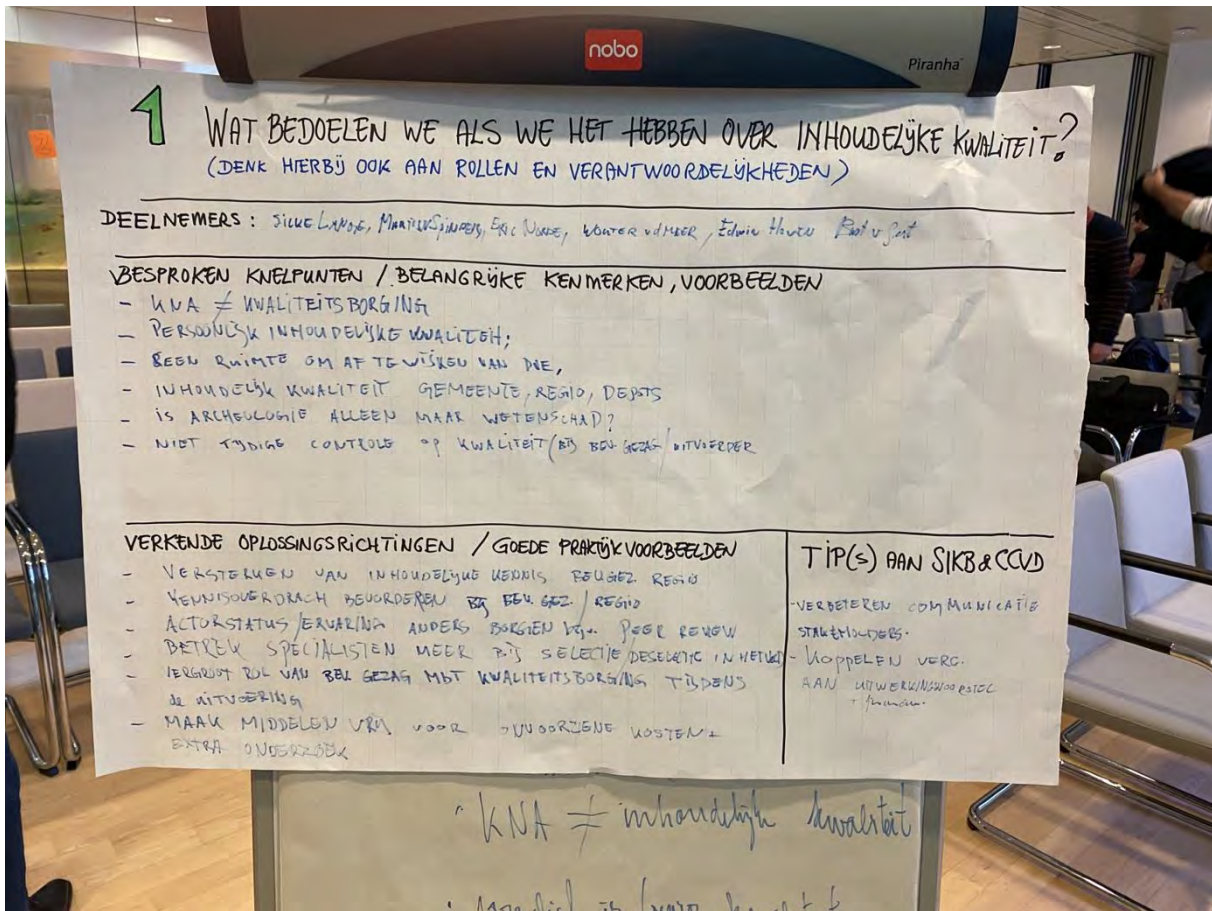 nobo
Piranha
1 WAT BEDOELEN WE ALS WE HET HEBBEN OVER INHOUDELIJKE KWALITEIT?
(DENK HIERBIJ OOK AAN ROLLEN EN VERANTWOORDELIJKHEDEN)
DEELNEMERS: SILKE LANGE, ERIC NORDE, WOUTER Edwin
BESPROKEN KNELPUNTEN / BELANGRIJKE KENMERKEN, VOORBEELDEN
- KNA ≠ KWALITEITSBORGING
- PERSOONLIJK INHOUDELIJKE KWALITEIT;
- GEEN RUIMTE OM AF TE WIJKEN VAN PVE,
- INHOUDELIJK KWALITEIT GEMEENTE, REGIO, DEPOTS
- IS ARCHEOLOGIE ALLEEN MAAR WETENSCHAP?
- NIET TIJDIGE CONTROLE OP KWALITEIT (BIJ BEV. GEZAG / UITVOERDER
VERKENDE OPLOSSINGSRICHTINGEN / GOEDE PRAKTIJKVOORBEELDEN
- VERSTERKEN VAN INHOUDELIJKE KENNIS BEV. GEZ. REGIO
- KENNISOVERDRACH BEVORDEREN BIJ BEV. GEZ. / REGIO
- ACTORSTATUS/ERVARING ANDERS BORGEN PEER REVIEW
- BETREK SPECIALISTEN MEER BIJ SELECTIE/DESELECTIE IN HET
- VERGROOT ROL VAN BEV. GEZAG MBT KWALITEITSBORGING TIJDENS
de UITVOERING
- MAAK MIDDELEN VRIJ VOOR ONVOORZIENE KOSTEN +
EXTRA ONDERZOEK
TIP(S) AAN SIKB & CCVD
- VERBETEREN COMMUNICATIE
STAKEHOLDERS.
- KOPPELEN VERG.
AAN
KNA ≠ inhoudelijk kwaliteit